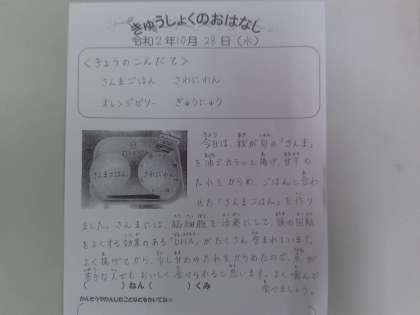 きゅうしょくのおはなし
令和2年10月28日(水)
<きょうのこんだて>
さんまごはん さわにわん
オレンジゼリー ぎゅうにゅう
さんまごはん
さわにわん
今日は、秋が旬の「さんま」
を油でカラッと揚げ、甘辛の
たれとからめ、ごはんと合わ
せた「さんまごはん」を作り
ました。さんまには、脳細胞を活発にして、頭の回転
をよくする効果のある"DHA"がたくさん含まれています。
よく揚げてから、少し甘めのたれをからめたので、魚が
苦手な人でもおいしく食べられると思います。よく噛んで
食べましょう。
( )ねん( )くみ
かんそうやかんじたことなどをかいてね☆